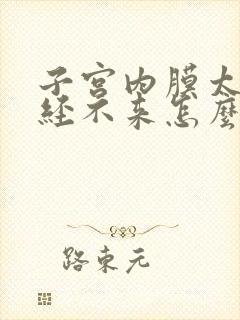 子宫内膜太
经不来怎麽
路東元